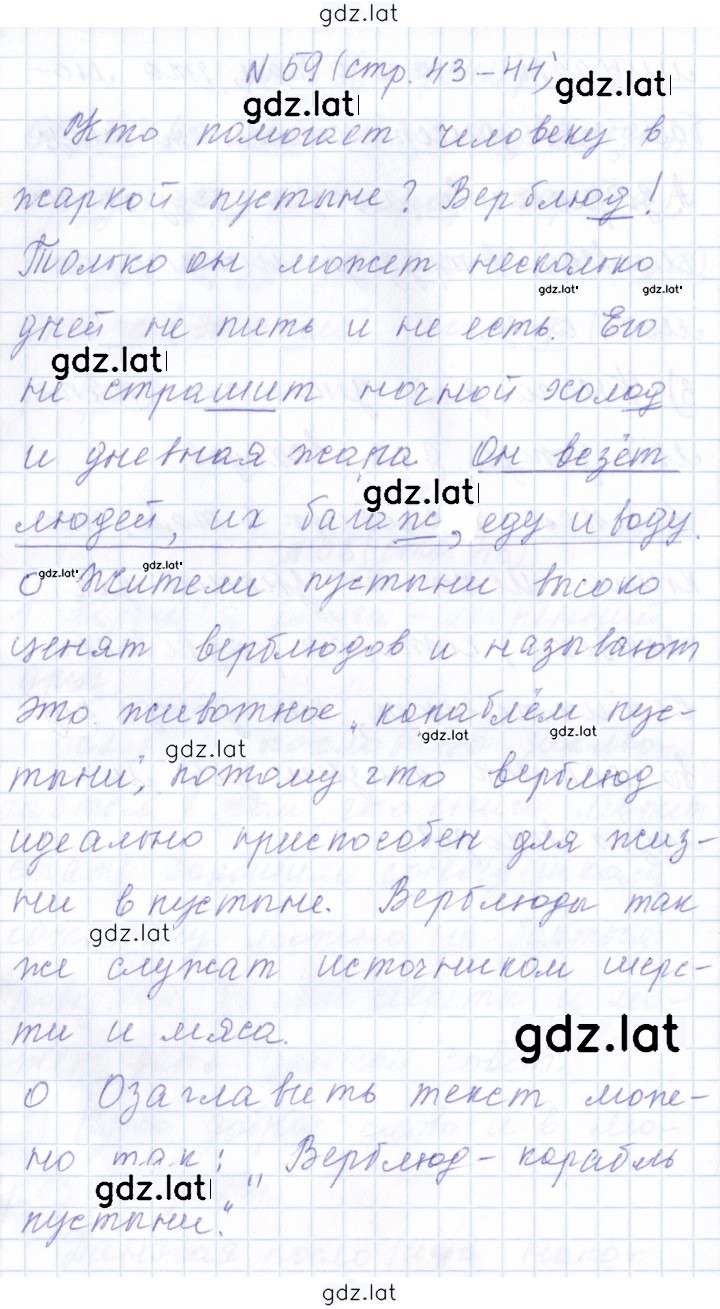 gdz.lat
N 59 (стр. 43-44)
gdz.lat gdz.lat
Кто помогает человеку в
жаркой пустыне? Верблюд!
Только он может несколько
gdz.lat gdz.lat
дней не пить и не есть. Его
gdz.lat
не страшит ночной холод
и дневная жара. Он везёт
gdz.lat
людей, их багаж, еду и воду.
gdz.lat gdz.lat
о Жители пустыни высоко
ценят верблюдов и называют
это животное „кораблём пус-
gdz.lat gdz.lat gdz.lat
тыни“, потому что верблюд
идеально приспособен для жиз-
ни в пустыне. Верблюды так
gdz.lat
же служат источником шерс-
ти и мяса.
gdz.lat
о Озаглавить текст мож-
но так: „Верблюд - корабль
gdz.lat
пустыни“.
gdz.lat